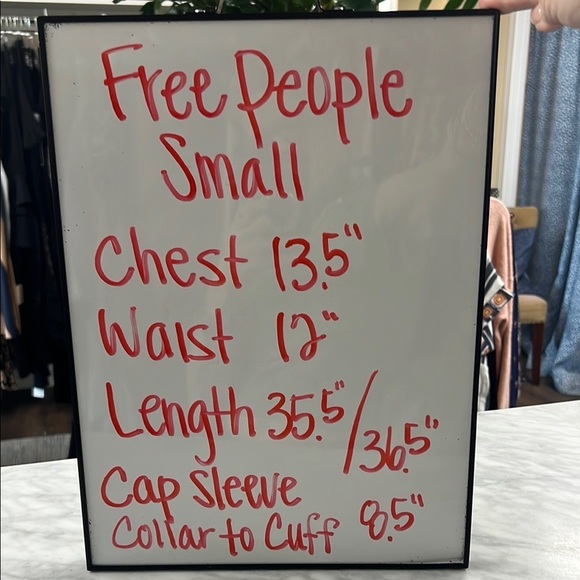 Free People
Small
Chest 13.5"
Waist 12"
Length 35.5"/36.5"
Cap Sleeve
Collar to Cuff 8.5"